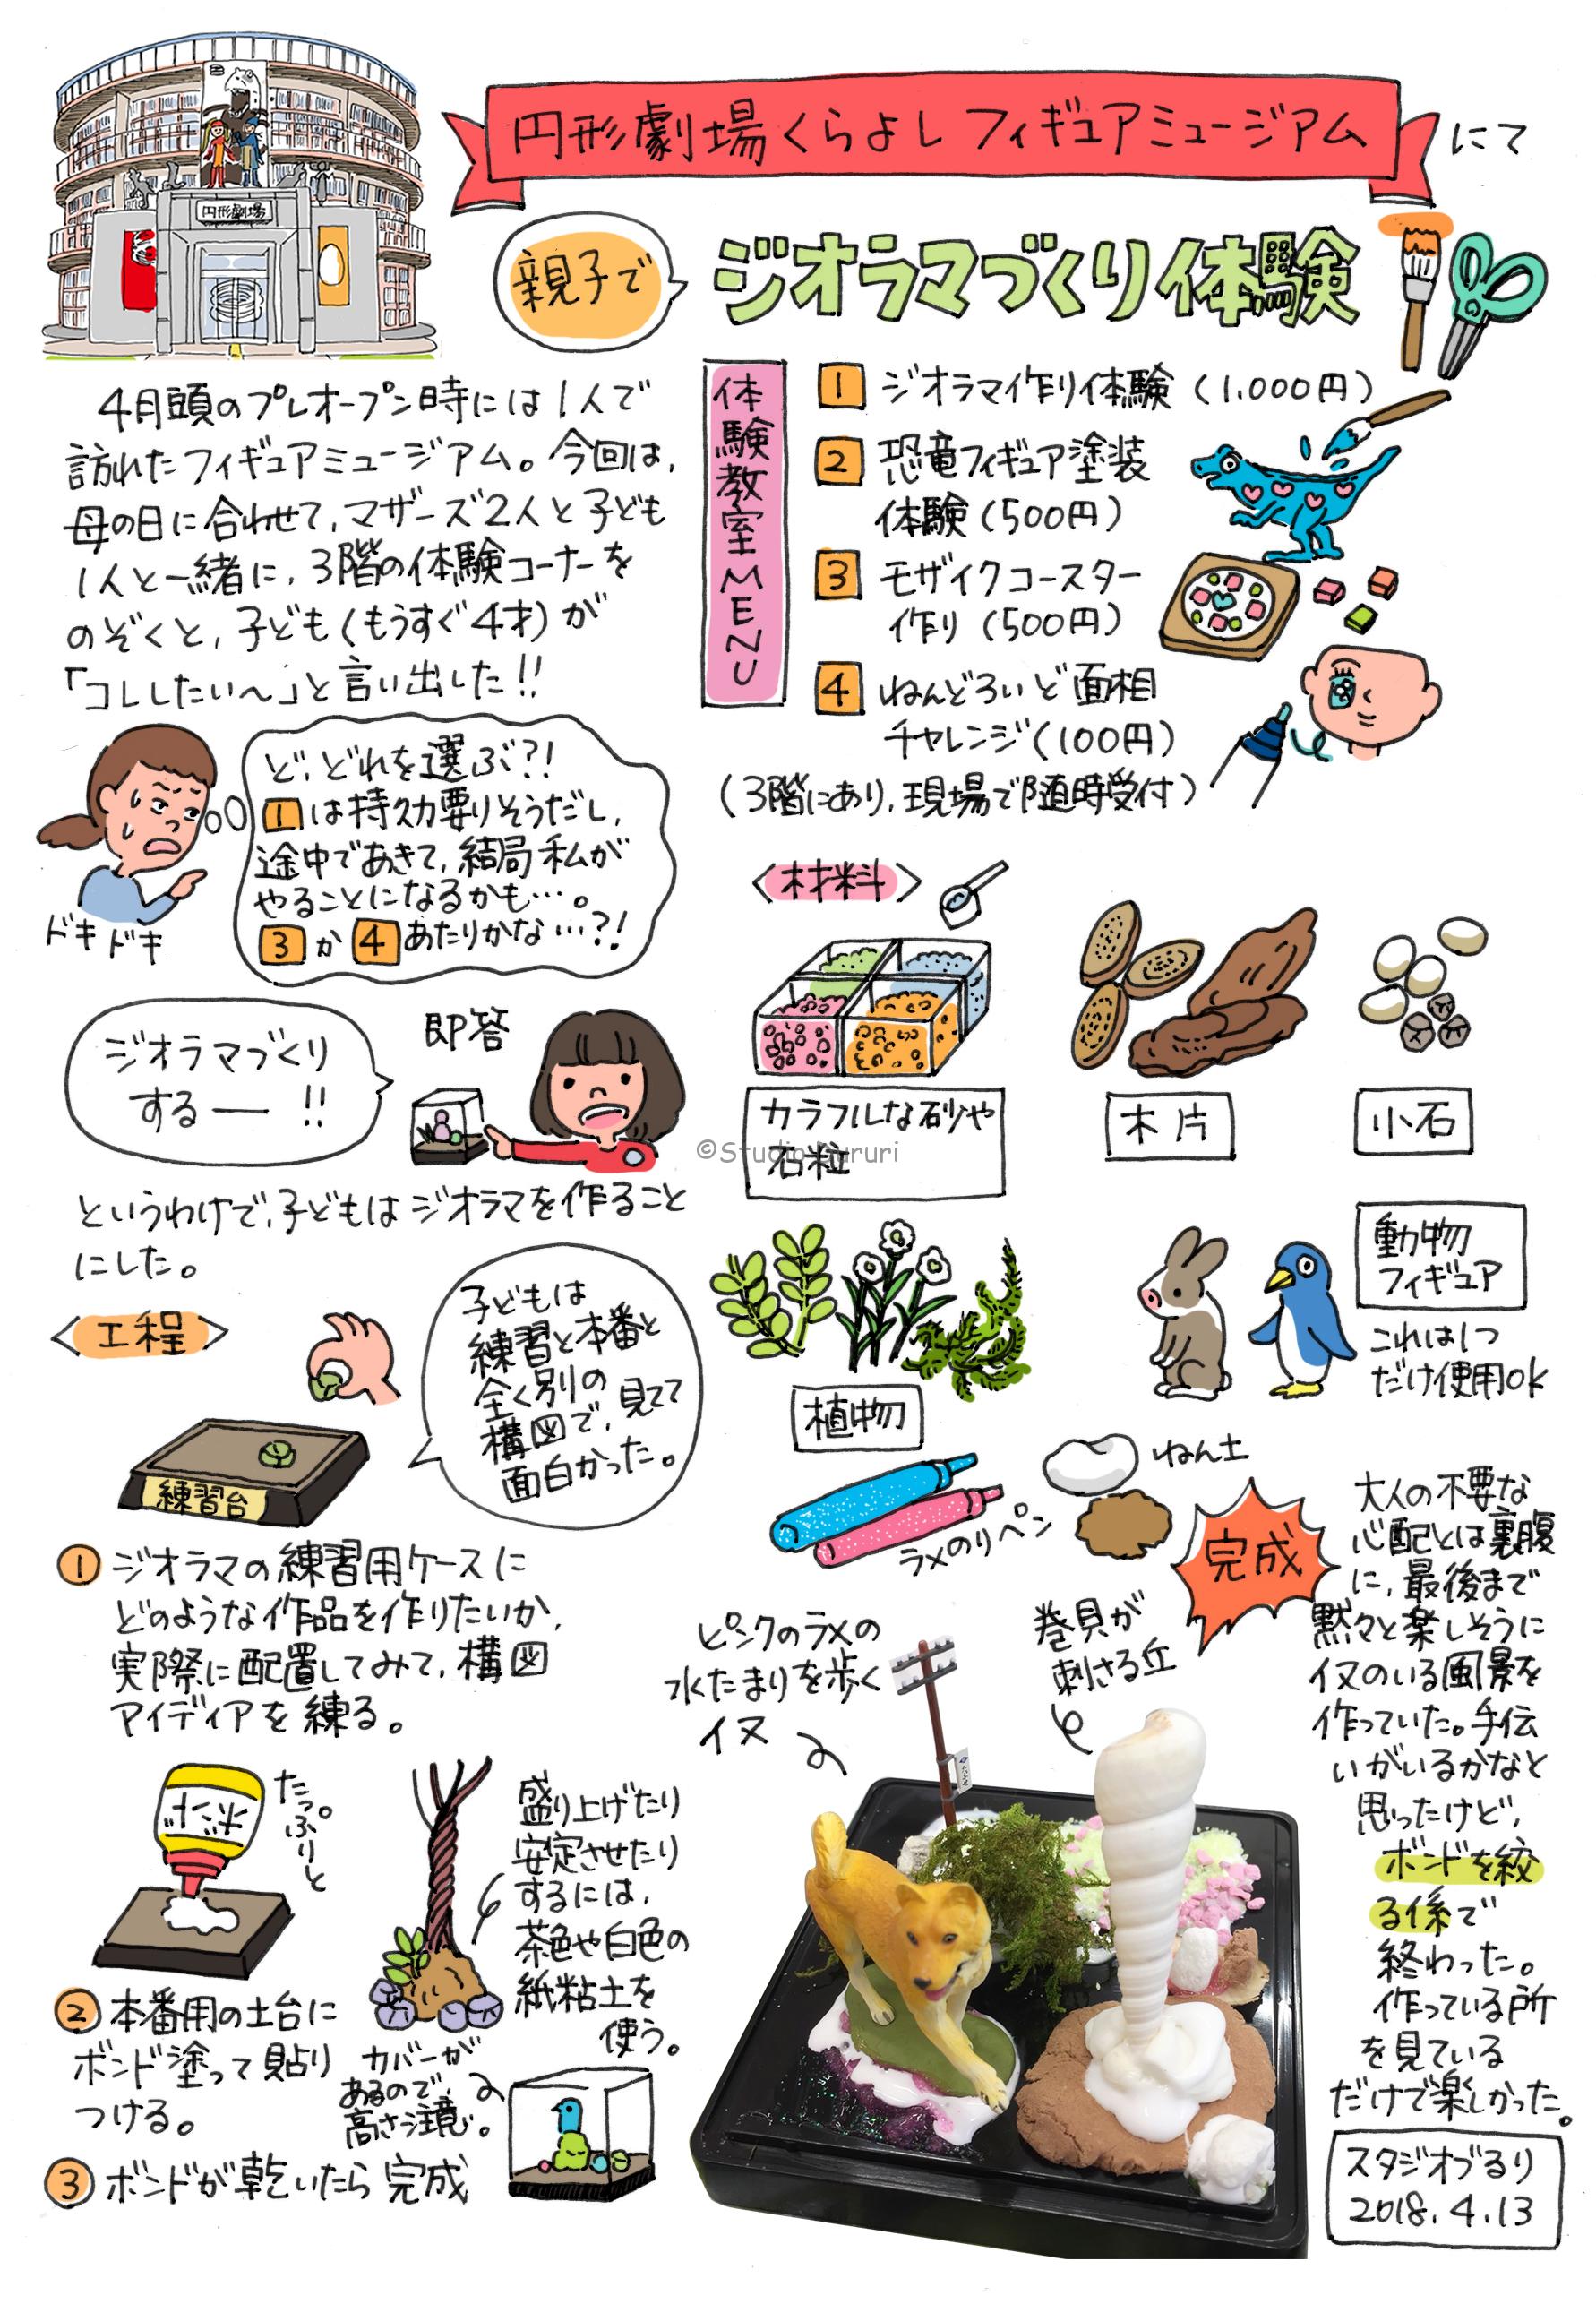 円形劇場くらよしフィギュアミュージアム にて
円形劇場
親子で
ジオラマづくり体験
4月頭のプレオープン時には1人で
訪れたフィギュアミュージアム。今回は、
母の日に合わせて、マザーズ2人と子ども
1人と一緒に、3階の体験コーナーを
のぞくと、子ども(もうすぐ4才)が
「コレしたい〜」と言い出した!!
体験教室MENU
1 ジオラマ作り体験(1,000円)
2 恐竜フィギュア塗装
体験(500円)
3 モザイクコースター
作り(500円)
4 ねんどろいど面相
チャレンジ(100円)
(3階にあり、現場で随時受付)
ど、どれを選ぶ?!
1は持久力要りそうだし、
途中であきて、結局私が
やることになるかも…。
3か4あたりかな…?!
ドキドキ
ジオラマづくり
するー!!
即答
というわけで、子どもはジオラマを作ること
にした。
〈材料〉
カラフルな砂や
石粒
木片
小石
植物
動物
フィギュア
これは1つ
だけ使用OK
ラメのりペン
ねん土
©Studio Dururi
〈工程〉
子どもは
練習と本番と
全く別の
構図で、見てて
面白かった。
練習台
① ジオラマの練習用ケースに
どのような作品を作りたいか、
実際に配置してみて、構図
アイディアを練る。
ボンド
たっぷりと
② 本番用の土台に
ボンド塗って貼り
つける。
盛り上げたり
安定させたり
するには、
茶色や白色の
紙粘土を
使う。
カバーが
あるので、
高さ注意。
③ ボンドが乾いたら完成
完成
ピンクのラメの
水たまりを歩く
イヌ
巻貝が
刺さる丘
大人の不要な
心配とは裏腹
に、最後まで
黙々と楽しそうに
イヌのいる風景を
作っていた。手伝
いがいるかなと
思ったけど、
ボンドを絞
る係で
終わった。
作っている所
を見ている
だけで楽しかった。
スタジオづるり
2018.4.13